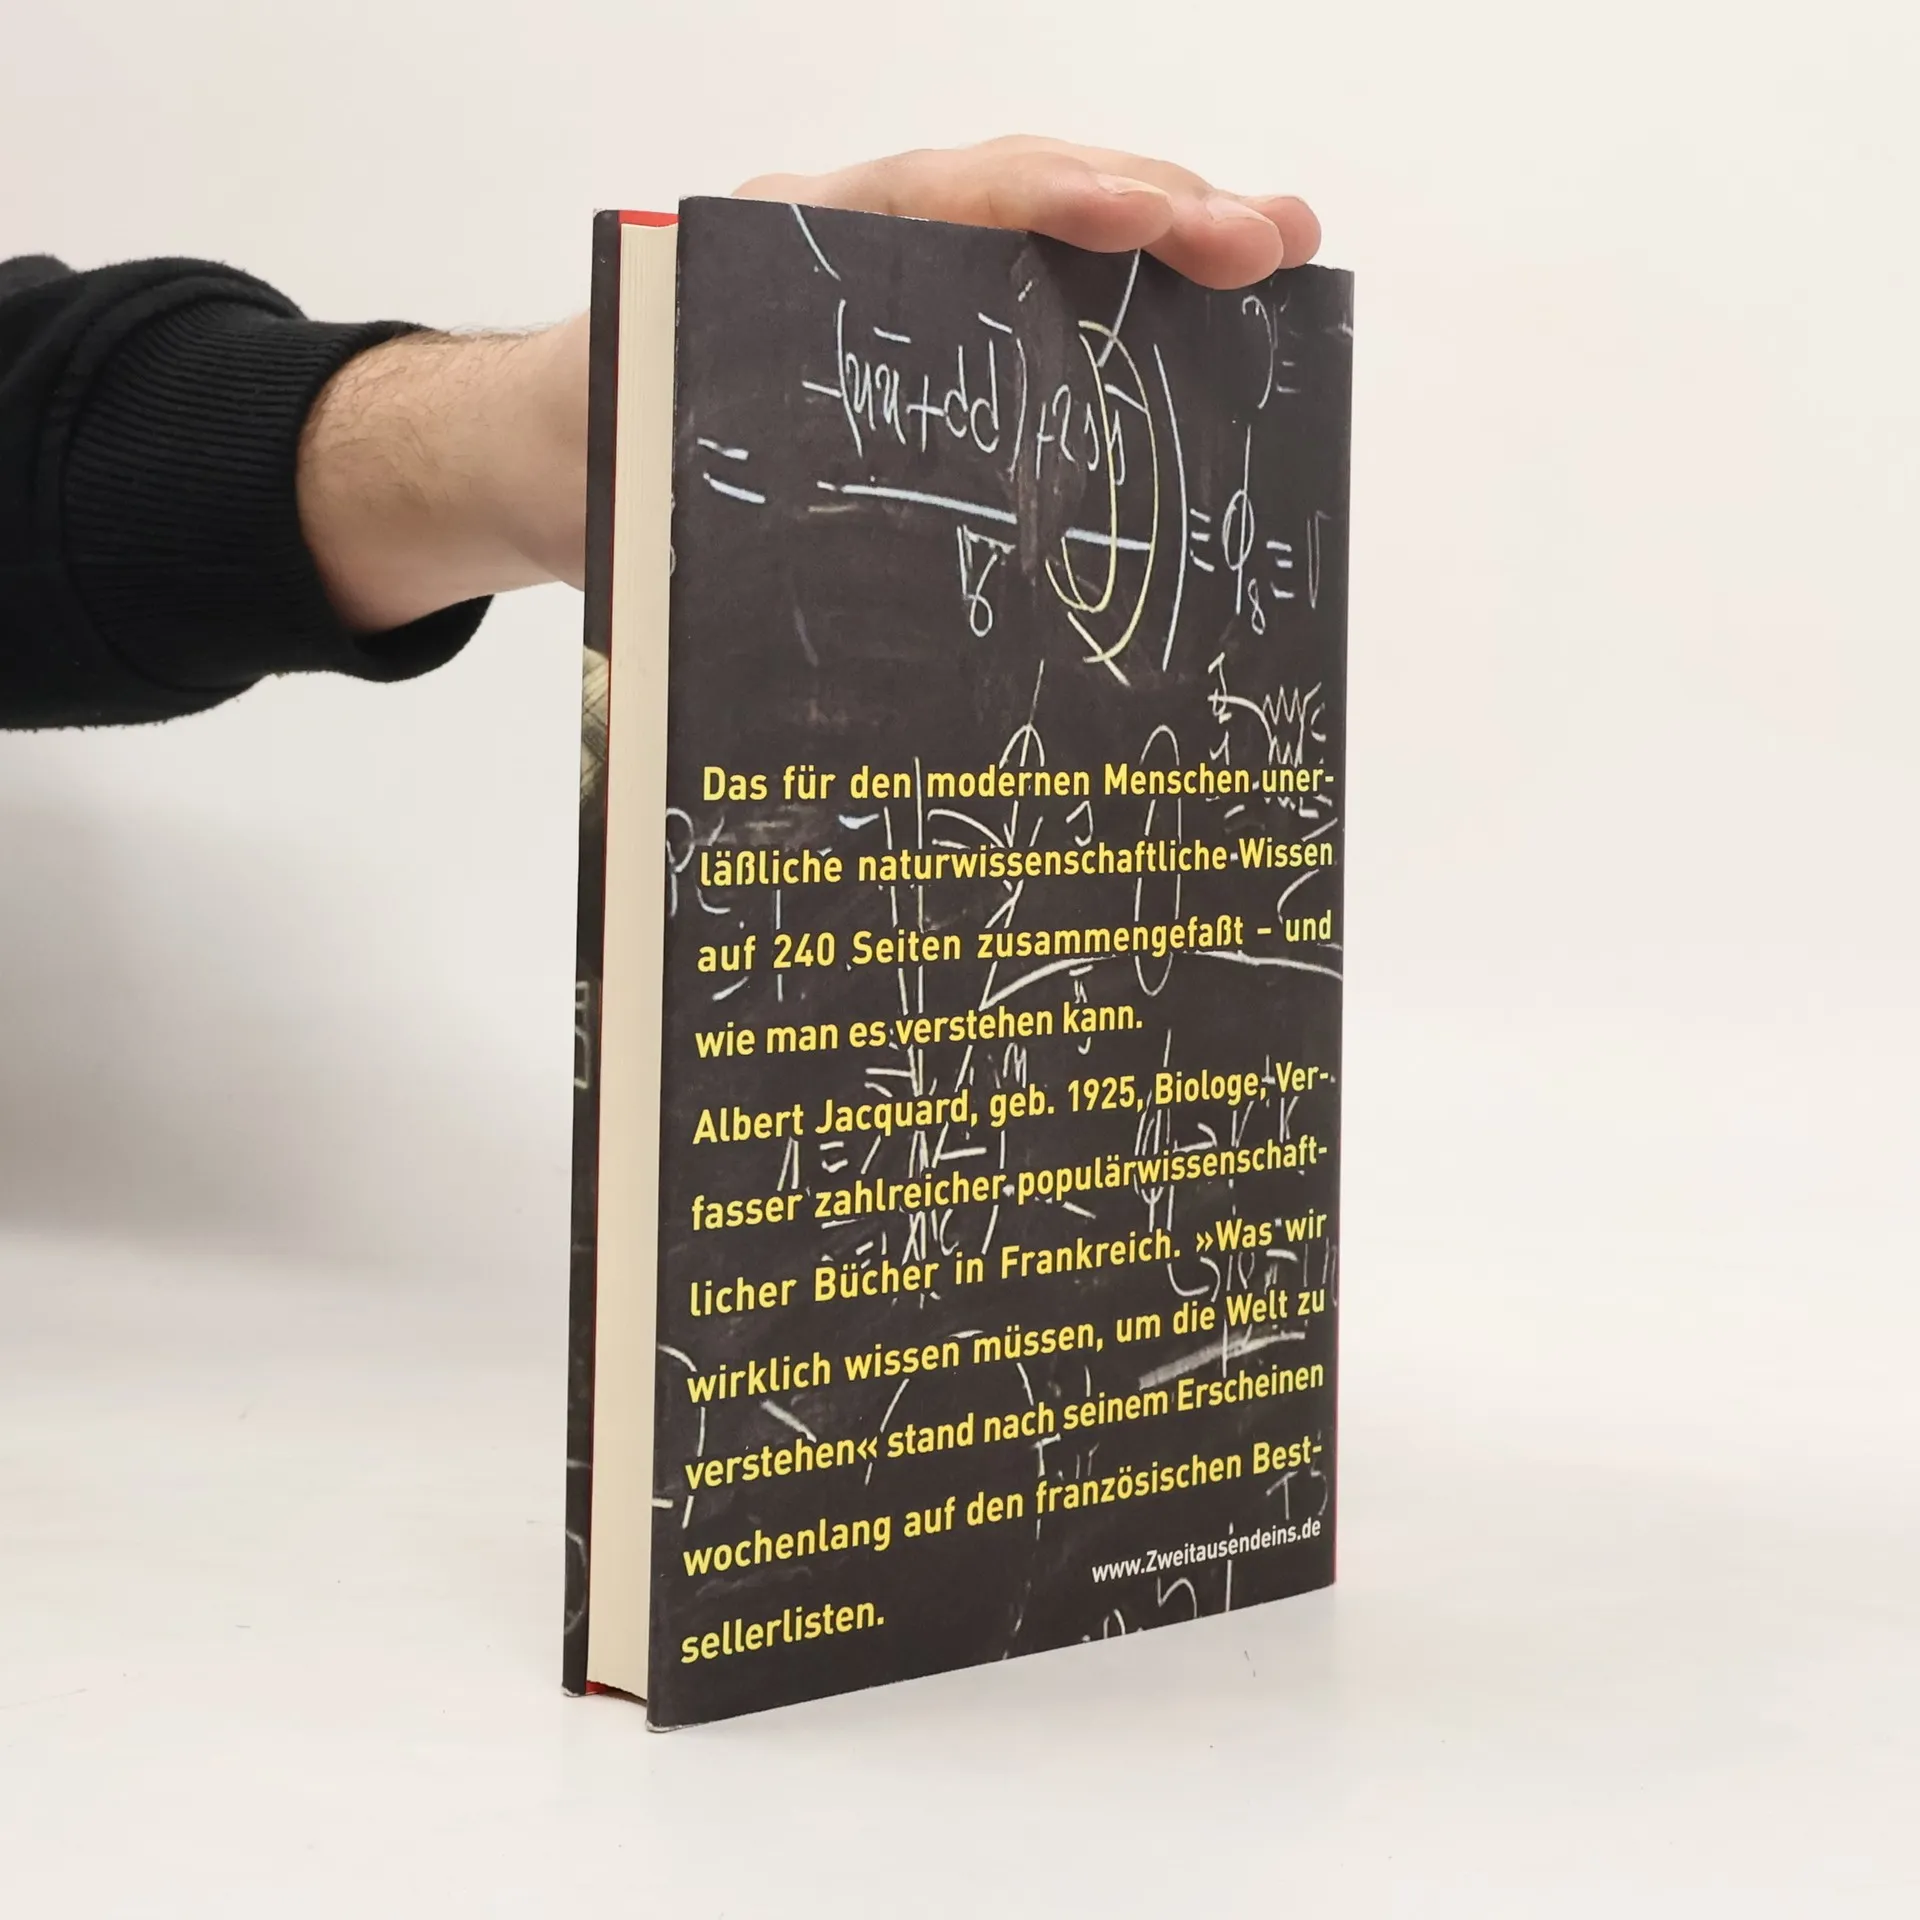 Das für den modernen Menschen uner-
läßliche naturwissenschaftliche Wissen
auf 240 Seiten zusammengefaßt – und
wie man es verstehen kann.
Albert Jacquard, geb. 1925, Biologe, Ver-
fasser zahlreicher populärwissenschaft-
licher Bücher in Frankreich. »Was wir
wirklich wissen müssen, um die Welt zu
verstehen« stand nach seinem Erscheinen
wochenlang auf den französischen Best-
sellerlisten.
www.Zweitausendeins.de